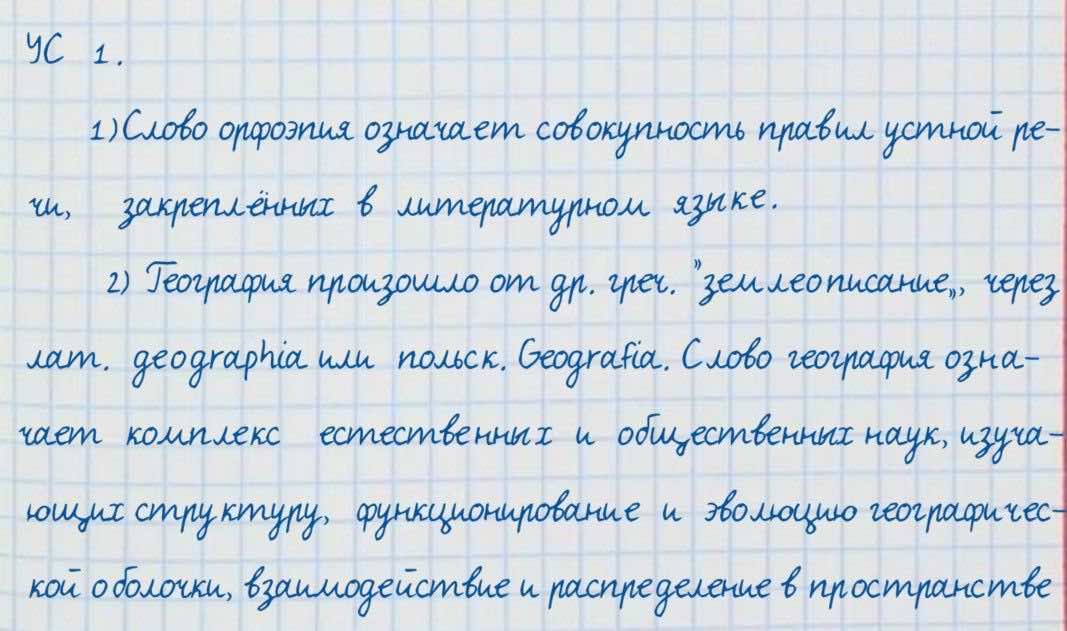 УС 1.
1) Слово орфоэпия означает совокупность правил устной ре-
чи, закреплённых в литературном языке.
2) География произошло от др. греч. "землеописание„, через
лат. geographia или польск. Geografia. Слово география озна-
чает комплекс естественных и общественных наук, изуча-
ющих структуру, функционирование и эволюцию географичес-
кой оболочки, взаимодействие и распределение в пространстве